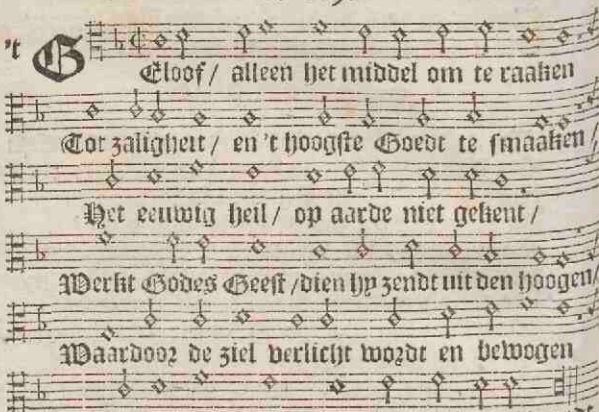 't GEloof/ alleen het middel om te raaken
Tot zaligheit/ en 't hoogste Goedt te smaaken/
Het eeuwig heil/ op aarde niet gekent/
Werkt Godes Geest/dien hy zendt uit den hoogen/
Waardoor de ziel verlicht wordt en bewogen